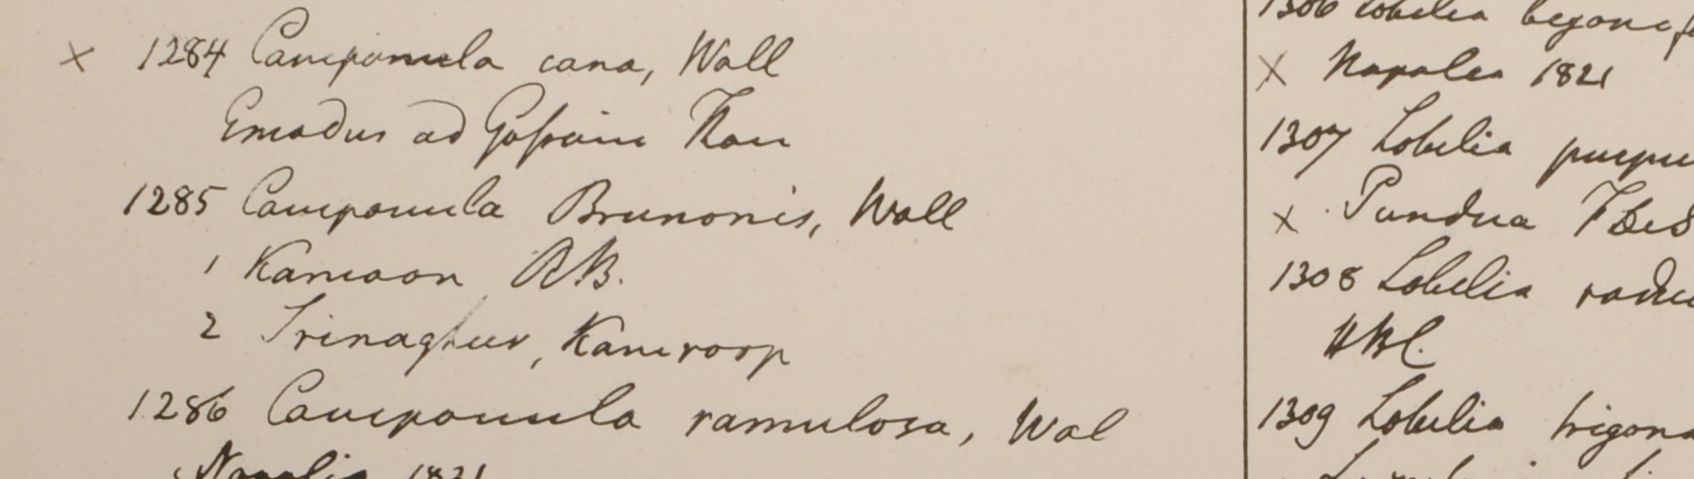 × 1284 Campanula cana, Wall
Emodus ad Gossain Than
1285 Campanula Brunonis, Wall
1 Kamaon RB.
2 Srinaghur, Kamroop
1286 Campanula ramulosa, Wal
Napalia 1821
1306 Lobelia
× Napalea 1821
1307 Lobelia purpu
× Pundua
1308 Lobelia radic
HBC.
1309 Lobelia trigona